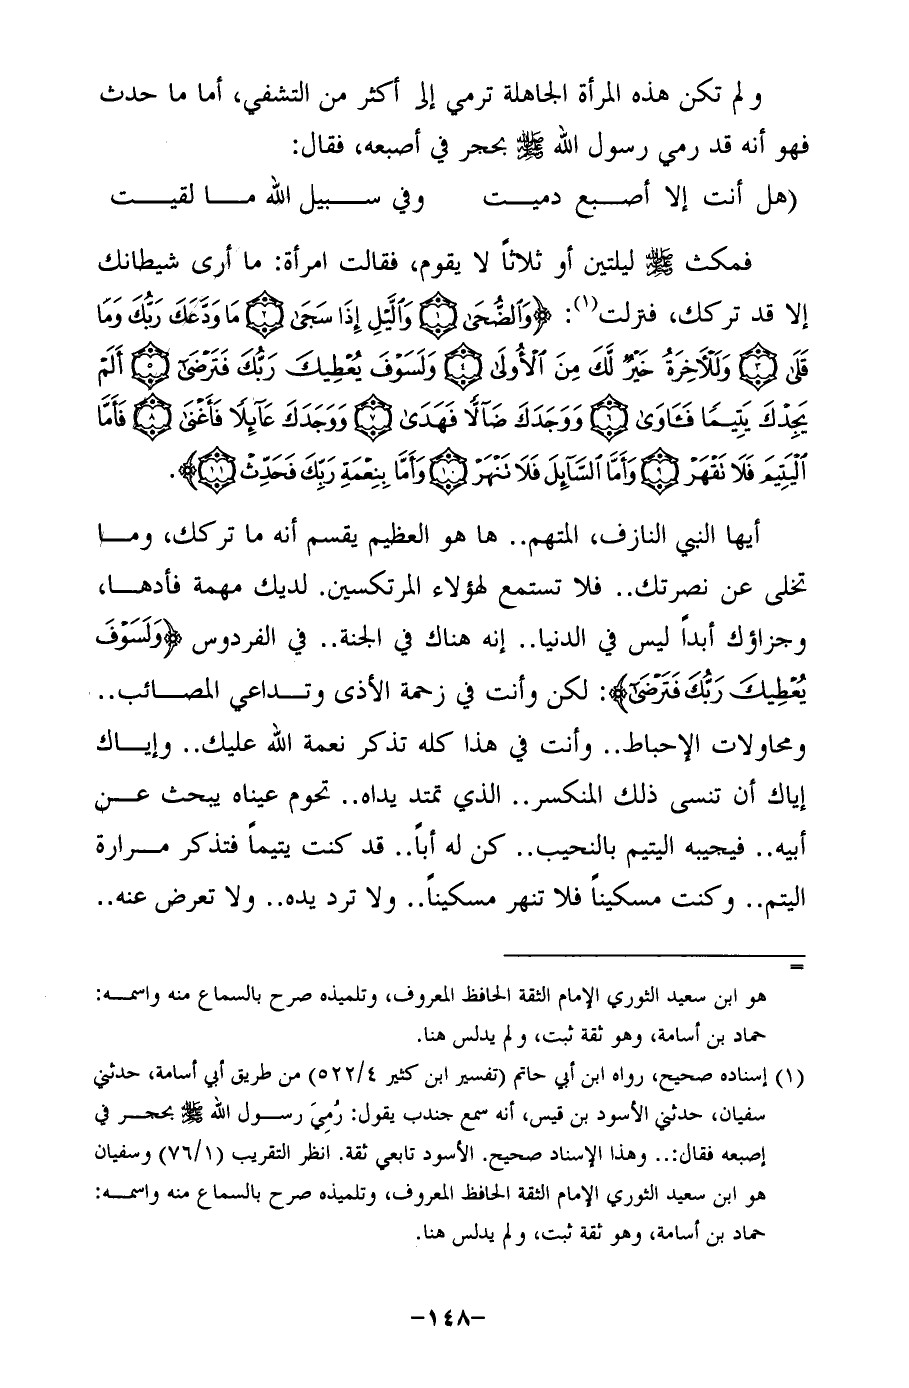 ولم تكن هذه المرأة الجاهلة ترمي إلى أكثر من التشفي، أما ما حدث
فهو أنه قد رمي رسول الله ﷺ بحجر في أصبعه، فقال:
(هل أنت إلا أصبع دميت وفي سبيل الله ما لقيت
فمكث ﷺ ليلتين أو ثلاثاً لا يقوم، فقالت امرأة: ما أرى شيطانك
إلا قد تركك، فنزلت(١): ﴿وَٱلضُّحَىٰ ۝١ وَٱلَّيْلِ إِذَا سَجَىٰ ۝٢ مَا وَدَّعَكَ رَبُّكَ وَمَا
قَلَىٰ ۝٣ وَلَلْآخِرَةُ خَيْرٌ لَّكَ مِنَ ٱلْأُولَىٰ ۝٤ وَلَسَوْفَ يُعْطِيكَ رَبُّكَ فَتَرْضَىٰٓ ۝٥ أَلَمْ
يَجِدْكَ يَتِيمًا فَـَٔاوَىٰ ۝٦ وَوَجَدَكَ ضَآلًّا فَهَدَىٰ ۝٧ وَوَجَدَكَ عَآئِلًا فَأَغْنَىٰ ۝٨ فَأَمَّا
ٱلْيَتِيمَ فَلَا تَقْهَرْ ۝٩ وَأَمَّا ٱلسَّآئِلَ فَلَا تَنْهَرْ ۝١٠ وَأَمَّا بِنِعْمَةِ رَبِّكَ فَحَدِّثْ ۝١١﴾.
أيها النبي النازف، المتهم.. ها هو العظيم يقسم أنه ما تركك، وما
تخلى عن نصرتك.. فلا تستمع لهؤلاء المرتكسين. لديك مهمة فأدها،
وجزاؤك أبداً ليس في الدنيا.. إنه هناك في الجنة.. في الفردوس ﴿وَلَسَوْفَ
يُعْطِيكَ رَبُّكَ فَتَرْضَىٰٓ﴾: لكن وأنت في زحمة الأذى وتداعي المصائب..
ومحاولات الإحباط.. وأنت في هذا كله تذكر نعمة الله عليك.. وإياك
إياك أن تنسى ذلك المنكسر.. الذي تمتد يداه.. تحوم عيناه يبحث عن
أبيه.. فيجيبه اليتيم بالنحيب.. كن له أباً.. قد كنت يتيماً فتذكر مرارة
اليتم.. وكنت مسكيناً فلا تنهر مسكيناً.. ولا ترد يده.. ولا تعرض عنه..
=
هو ابن سعيد الثوري الإمام الثقة الحافظ المعروف، وتلميذه صرح بالسماع منه واسمه:
حماد بن أسامة، وهو ثقة ثبت، ولم يدلس هنا.
(١) إسناده صحيح، رواه ابن أبي حاتم (تفسير ابن كثير ٥٢٢/٤) من طريق أبي أسامة، حدثني
سفيان، حدثني الأسود بن قيس، أنه سمع جندب يقول: رُمِيَ رسول الله ﷺ بحجر في
إصبعه فقال:.. وهذا الإسناد صحيح. الأسود تابعي ثقة. انظر التقريب (٧٦/١) وسفيان
هو ابن سعيد الثوري الإمام الثقة الحافظ المعروف، وتلميذه صرح بالسماع منه واسمه:
حماد بن أسامة، وهو ثقة ثبت، ولم يدلس هنا.
-١٤٨-